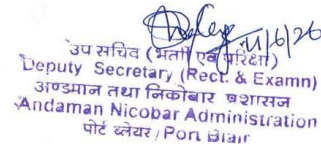 11/6/26
उप सचिव (भर्ती एवं परीक्षा)
Deputy Secretary (Rect. & Examn)
अण्डमान तथा निकोबार प्रशासन
Andaman Nicobar Administration
पोर्ट ब्लेयर / Port Blair